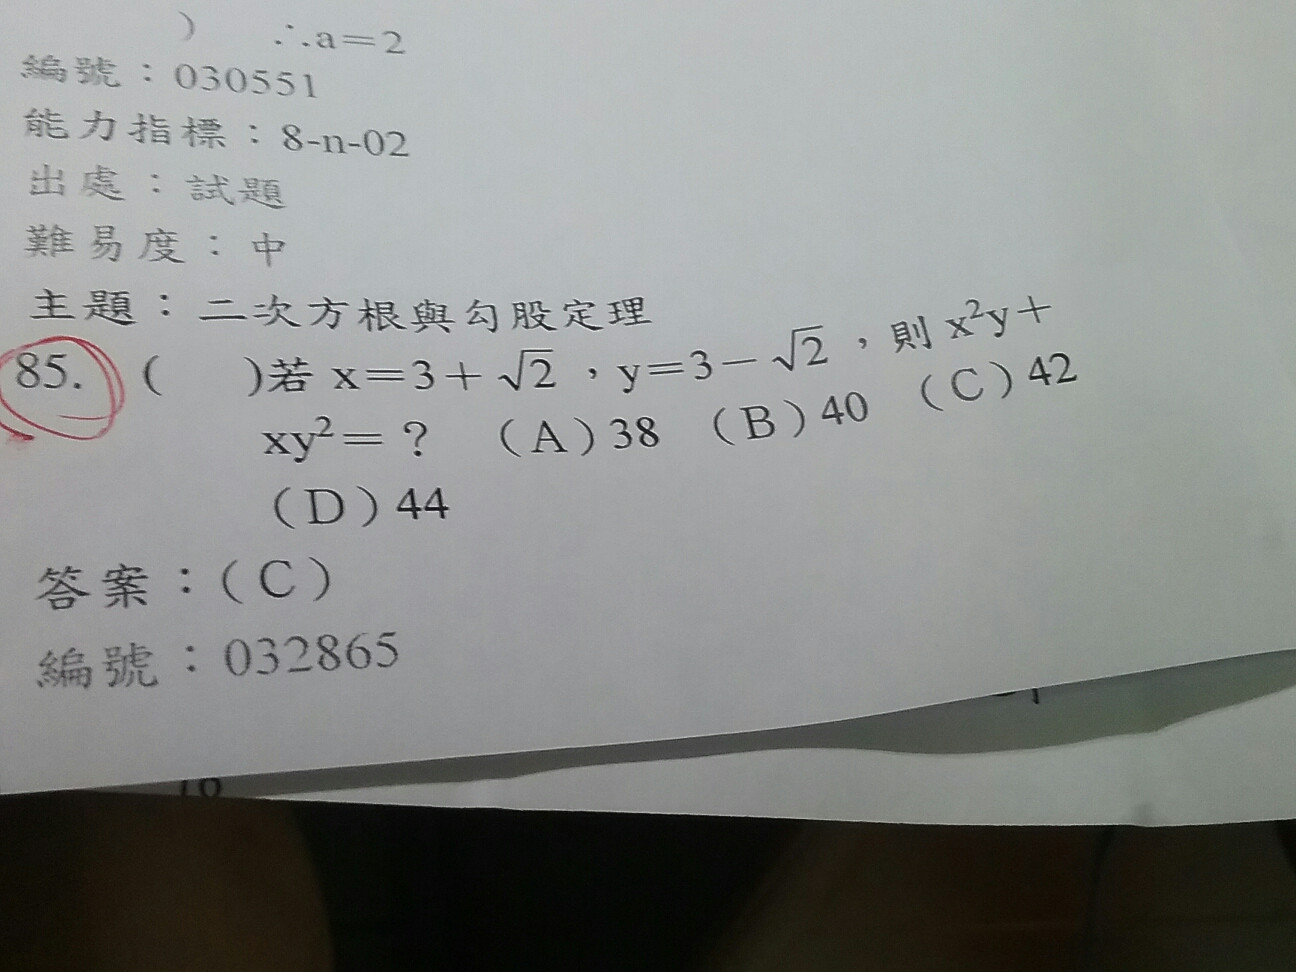 ) ∴a＝2
編號：030551
能力指標：8-n-02
出處：試題
難易度：中
主題：二次方根與勾股定理
85. (　　)若 x＝3＋√2，y＝3－√2，則 x²y＋
xy²＝？　（A）38　（B）40　（C）42
（D）44
答案：（C）
編號：032865